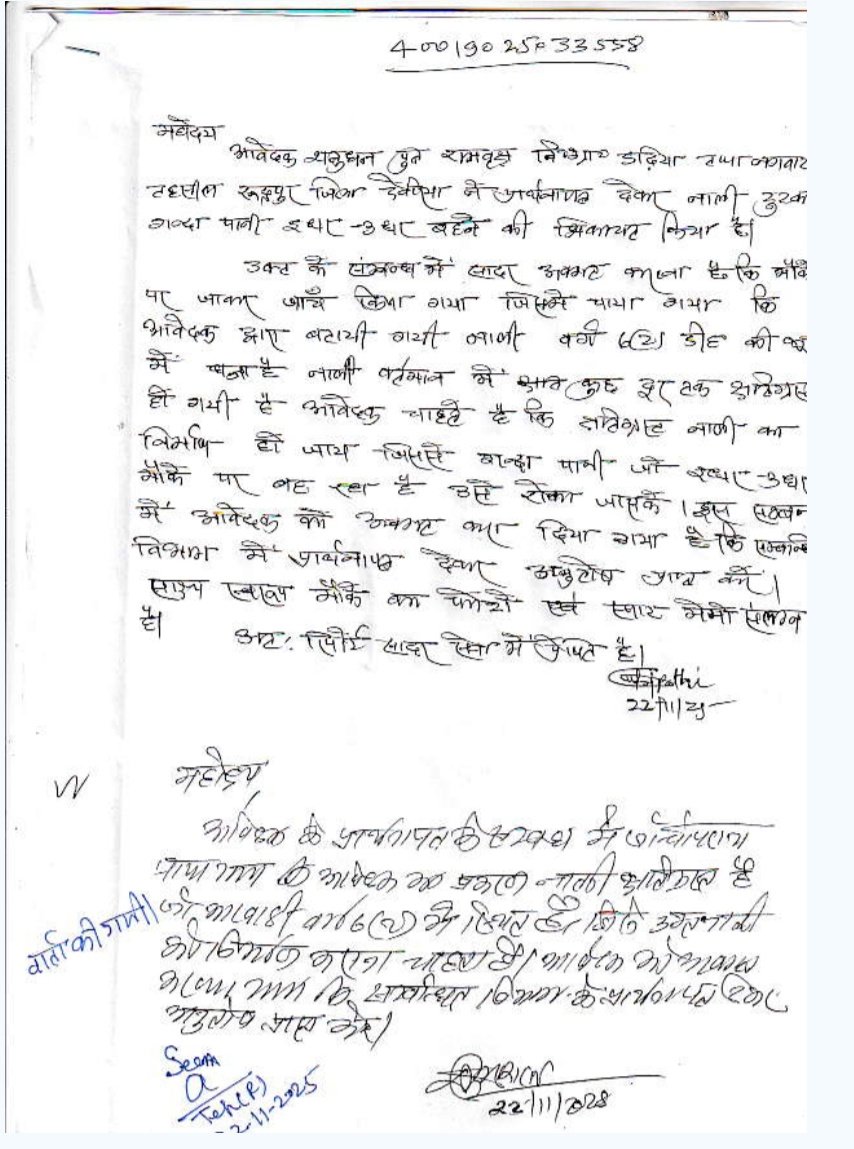 40019025033558
महोदय
आवेदक शत्रुघ्न पुत्र रामवृक्ष नि०ग्राम डढ़िया तप्पा
तहसील रूद्रपुर जिला देवरिया ने प्रार्थनापत्र देकर नाली
गन्दा पानी इधर-उधर बहने की शिकायत किया है।
उक्त के सम्बन्ध में सादर अवगत कराना है कि मौके
पर जाकर जाँच किया गया जिसमें पाया गया कि
आवेदक द्वारा बतायी गयी नाली वर्ग 6(2) डीह की
में बना है नाली वर्तमान में कुछ दूर तक क्षतिग्रस्त
हो गयी है आवेदक चाहते है कि क्षतिग्रस्त नाली का
निर्माण हो जाय जिससे गन्दा पानी जो इधर-उधर
मौके पर बह रहा है उसे रोका जासके। इस सम्बन्ध
में आवेदक को अवगत करा दिया गया है कि सम्बन्धित
विभाग में प्रार्थनापत्र देकर अनुतोष प्राप्त करें।
साक्ष्य स्वरूप मौके का फोटो एवं स्पाट मेमो संलग्न
है।
अतः रिपोर्ट सादर सेवा में प्रेषित है।
22/11/25
महोदय
आवेदक के प्रार्थनापत्र के सम्बन्ध में जाँचोपरान्त
पाया गया कि आवेदक का प्रकरण नाली क्षतिग्रस्त है
जो आबादी वर्ग 6(2) में स्थित है। जिसे उक्त नाली
को निर्माण कराना चाहता है। आवेदक को अवगत
कराया गया कि सम्बन्धित विभाग के प्रार्थनापत्र देकर
अनुतोष प्राप्त करें।
वार्ता की गयी।
Seen
Teh(R)
22-11-2025
22/11/2025